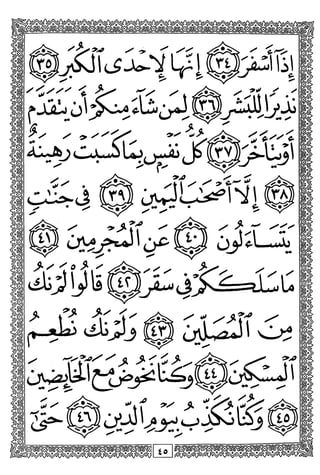 إِذَآ أَسۡفَرَ ٣٤ إِنَّهَا لَإِحۡدَى ٱلۡكُبَرِ ٣٥
نَذِيرٗا لِّلۡبَشَرِ ٣٦ لِمَن شَآءَ مِنكُمۡ أَن يَتَقَدَّمَ
أَوۡ يَتَأَخَّرَ ٣٧ كُلُّ نَفۡسِۭ بِمَا كَسَبَتۡ رَهِينَةٌ
٣٨ إِلَّآ أَصۡحَٰبَ ٱلۡيَمِينِ ٣٩ فِي جَنَّٰتٖ
يَتَسَآءَلُونَ ٤٠ عَنِ ٱلۡمُجۡرِمِينَ ٤١
مَا سَلَكَكُمۡ فِي سَقَرَ ٤٢ قَالُواْ لَمۡ نَكُ
مِنَ ٱلۡمُصَلِّينَ ٤٣ وَلَمۡ نَكُ نُطۡعِمُ
ٱلۡمِسۡكِينَ ٤٤ وَكُنَّا نَخُوضُ مَعَ ٱلۡخَآئِضِينَ
٤٥ وَكُنَّا نُكَذِّبُ بِيَوۡمِ ٱلدِّينِ ٤٦ حَتَّىٰٓ
٤٥